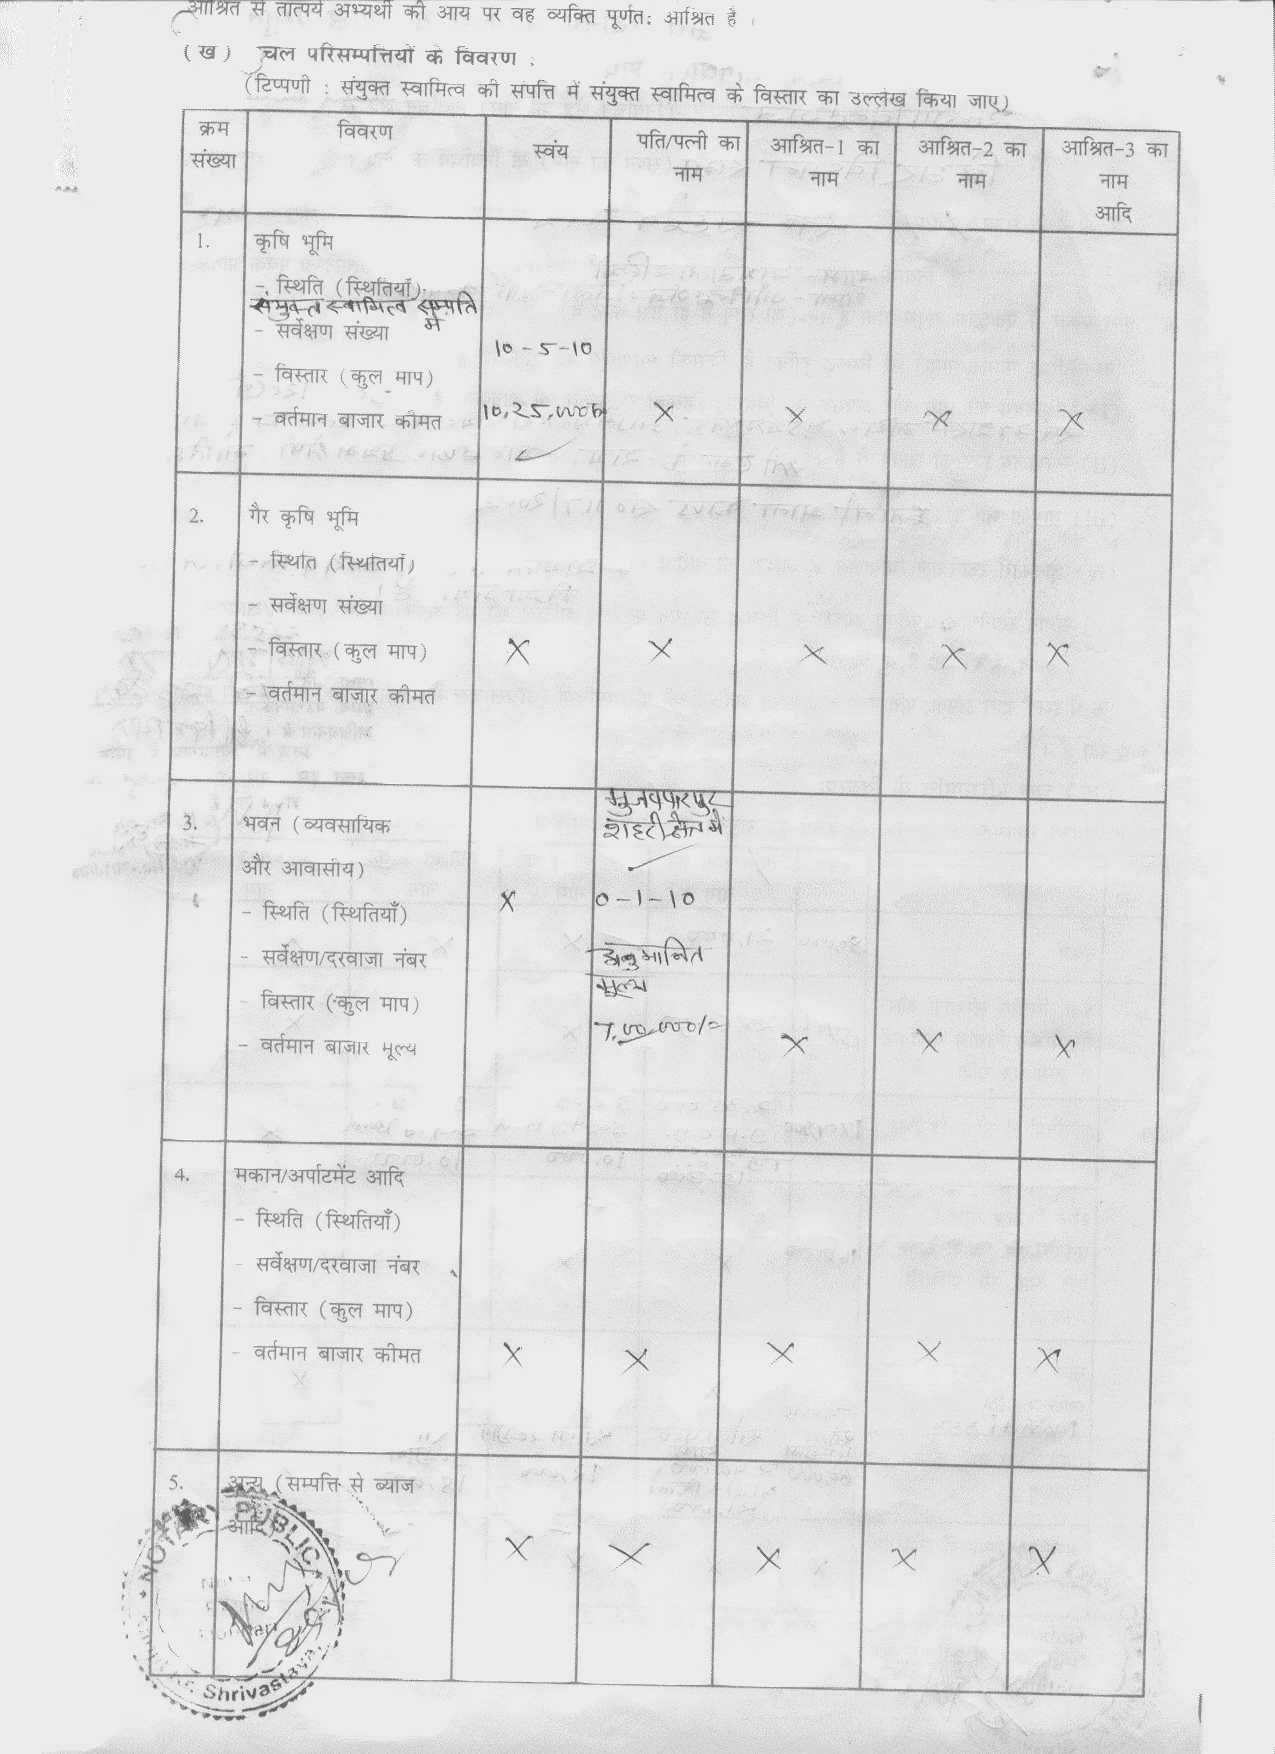 आश्रित से तात्पर्य अभ्यर्थी की आय पर वह व्यक्ति पूर्णत: आश्रित है ।
(ख) चल परिसम्पत्तियों के विवरण :
(टिप्पणी : संयुक्त स्वामित्व की संपत्ति में संयुक्त स्वामित्व के विस्तार का उल्लेख किया जाए)
क्रम संख्या विवरण स्वंय पति/पत्नी का नाम आश्रित-1 का नाम आश्रित-2 का नाम आश्रित-3 का नाम आदि
1. कृषि भूमि
- स्थिति (स्थितियाँ)
संयुक्त स्वामित्व सम्पति में
- सर्वेक्षण संख्या
10-5-10
- विस्तार (कुल माप)
- वर्तमान बाजार कीमत 10,25,000 X X X X
2. गैर कृषि भूमि
- स्थिति (स्थितियाँ)
- सर्वेक्षण संख्या
- विस्तार (कुल माप) X X X X X
- वर्तमान बाजार कीमत
मुजफ्फरपुर
3. भवन (व्यवसायिक शहरी क्षेत्र में
और आवासीय)
- स्थिति (स्थितियाँ) X 0-1-10
- सर्वेक्षण/दरवाजा नंबर अनुमानित
मूल्य
- विस्तार (कुल माप)
7,00,000/=
- वर्तमान बाजार मूल्य X X X
4. मकान/अर्पाटमेंट आदि
- स्थिति (स्थितियाँ)
- सर्वेक्षण/दरवाजा नंबर
- विस्तार (कुल माप)
- वर्तमान बाजार कीमत X X X X X
5. अन्य (सम्पत्ति से ब्याज
आदि X X X X X
NOTARY PUBLIC
Kr. Shrivastava